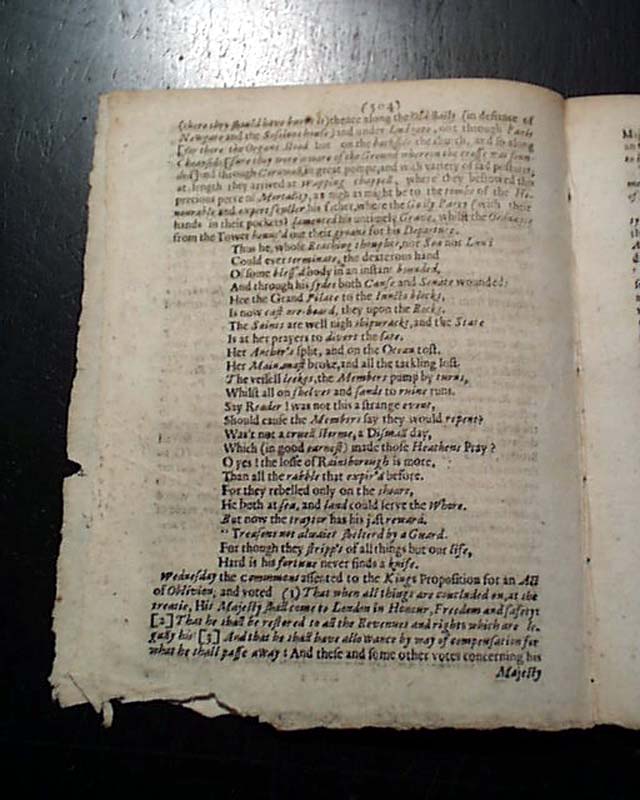 (304)
(where they should have thence along the Old Baily (in defiance of
Newgate and the Sessions house) and under Ludgate, not through Pauls
[for there the Organs stood but on the backside the church, and so along
Cheapside [sure they were aware of the Ground whereon the crosse was
ded] and through Cornewall, in great pompe, and with variety of sad postures,
at length they arrived at Wapping chappell, where they bestowed this
precious peece of Mortality, as nigh as might be to the tombe of the Ho-
nourable and expert scyller his father, where the Godly Party (with their
hands in their pockets) lamented his untimely Grave, whilst the Ordnance
from the Tower out their groans for his Departure.
Thus he, whose Reaching thoughts, nor Sea nor Land
Could ever terminate, the dexterous hand
Of some bless'd body in an instant bounded,
And through his sydes both Cause and Senate wounded:
Hee the Grand Pilate to the blocks,
Is now cast ore-board, they upon the Rocks.
The Saints are well nigh shipwrackt, and the State
Is at her prayers to divert the fate.
Her Anchor's split, and on the Ocean tost.
Her Mainmast broke, and all the tackling lost.
The vessell leekes, the Members pump by turns,
Whilst all on shelves and sands to ruine runs.
Say Reader! was not this a strange event,
Should cause the Members say they would repent?
Was't not a cruell storme, a Dismall day,
Which (in good earnest) made those Heathens Pray?
O yes! the losse of Rainsborough is more,
Than all the rabble that expir'd before.
For they rebelled only on the shoare,
He both at sea, and land could serve the Whore.
But now the traytor has his just reward.
"Treasons not alwaies shelterd by a Guard.
For though they stripp's of all things but our life,
Hard is his fortune never finds a knife.
Wednesday the Commons assented to the Kings Proposition for an Act
of Oblivion; and voted (1) That when all things are concluded on, at the
treatie, His Majesty shall come to London in Honour, Freedom and safety:
[2] That he shall be restored to all the Revenues and rights which are le-
gally his: [3] And that he shall have allowance by way of compensation for
what he shall passe away: And these and some other votes concerning his
Majesty